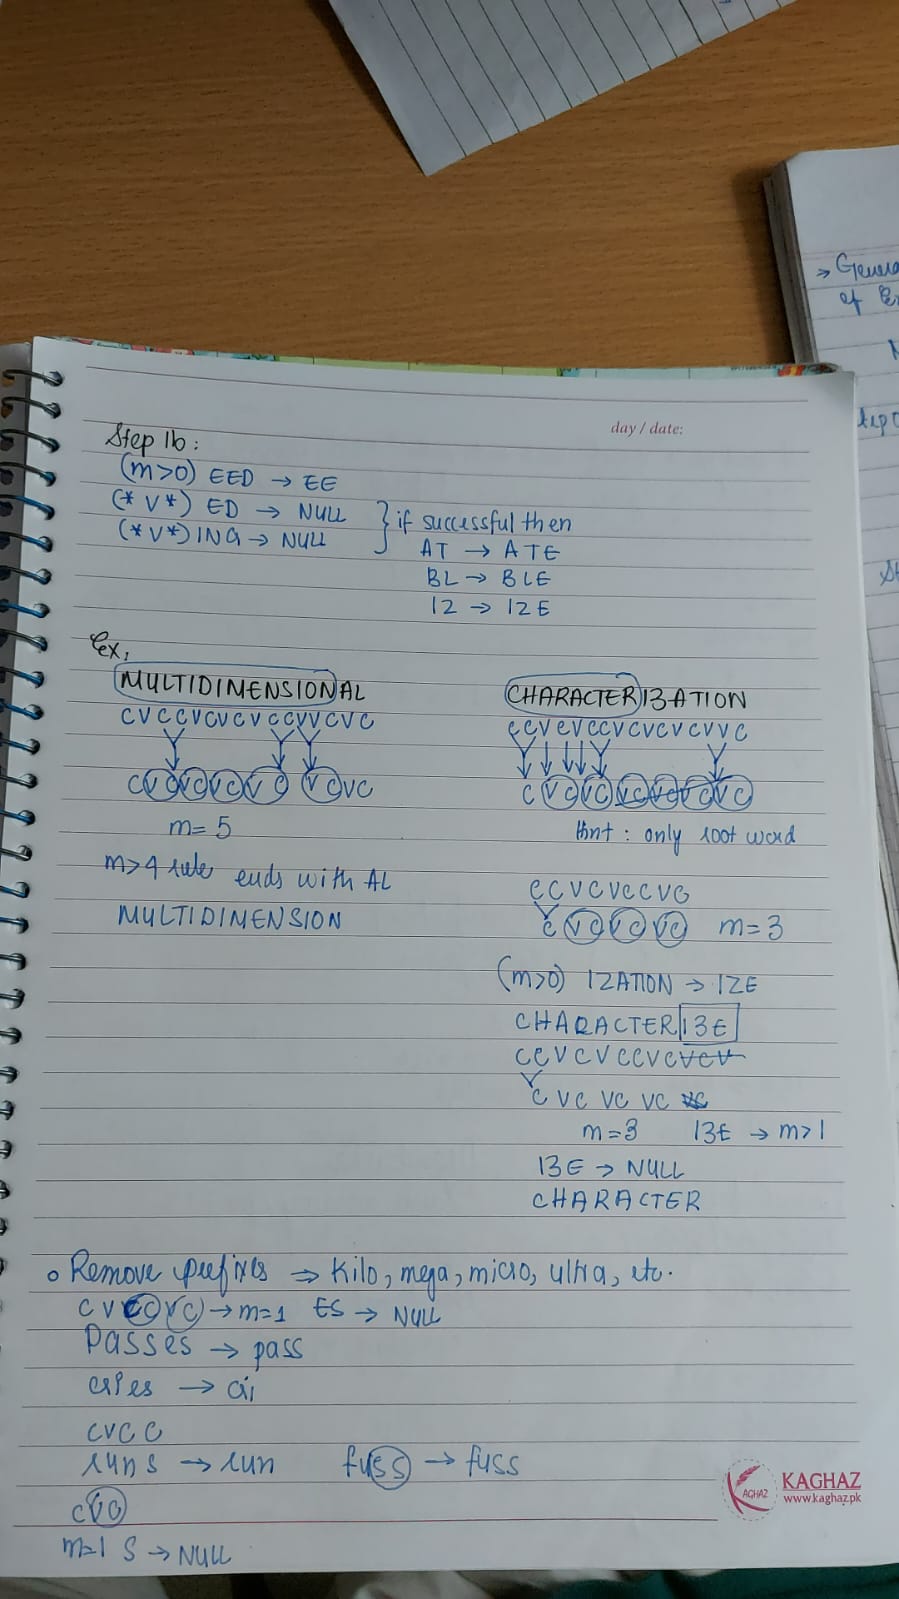 → Genera
of Ex
day / date:
Step 1b:
(m>0) EED → EE
(*V*) ED → NULL } if successful then
(*V*) ING → NULL
AT → ATE
BL → BLE
IZ → IZE
Ex,
MULTIDIMENSIONAL
CVCCVCVCVCCVVCVC
m= 5
m>4 rule ends with AL
MULTIDIMENSION
CHARACTERIZATION
C VC VC VC VC VC VC VC
Hint : only root word
CCVCVCCVC
C VC VC VC m=3
(m>0) IZATION → IZE
CHARACTERIZE
CCVCVCCVCVCV
C VC VC VC VC
m=3 IZE → m>1
IZE → NULL
CHARACTER
o Remove prefixes ⇒ Kilo, mega, micro, ultra, etc.
→ m=1 ES → NULL
Passes → pass
CVCC
runs → run fuss → fuss
CVC
m=1 S → NULL
KAGHAZ
KAGHAZ
www.kaghaz.pk